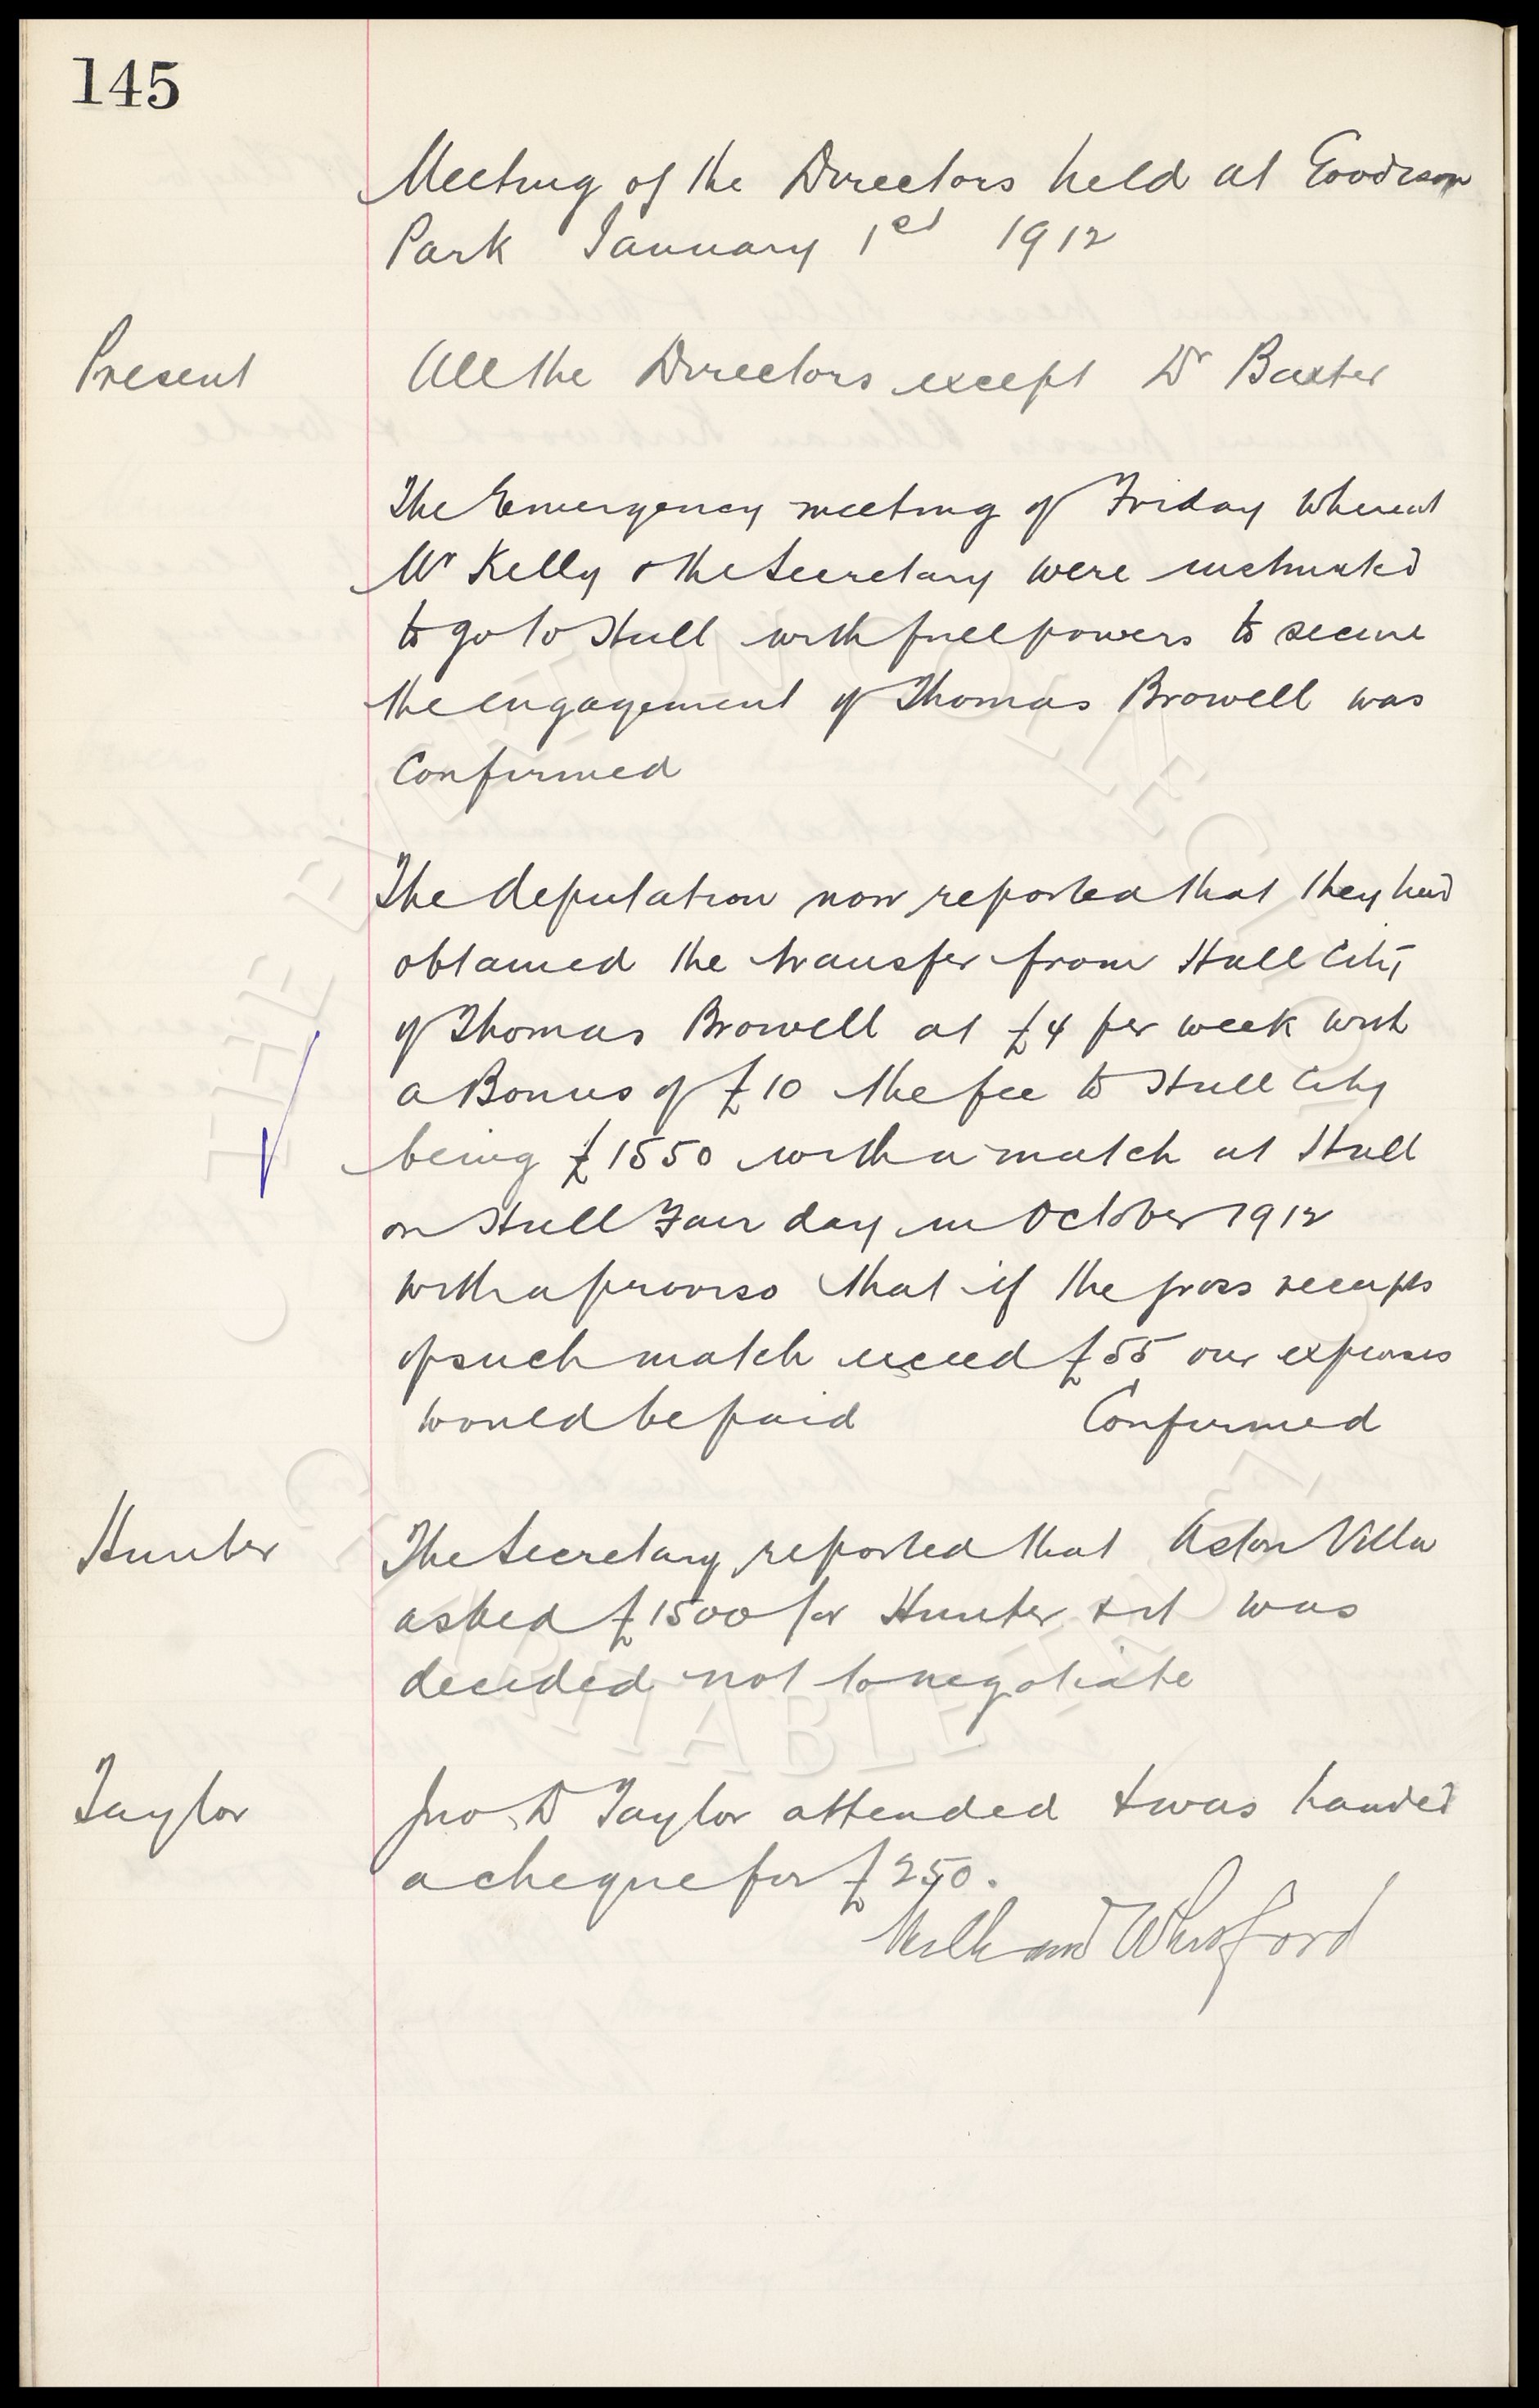 145
Meeting of the Directors held at Goodison
Park January 1st 1912
Present All the Directors except Dr Baxter
The Emergency meeting of Friday whereat
Mr Kelly & the Secretary were instructed
to go to Hull with full powers to secure
the engagement of Thomas Browell was
Confirmed
The deputation now reported that they had
obtained the transfer from Hull City
of Thomas Browell at £4 per week with
a Bonus of £10 the fee to Hull City
being £1550 with a match at Hull
on Hull Fair day in October 1912
with a proviso that if the gross receipts
of such match exceed £55 our expenses
would be paid Confirmed
Hunter The Secretary reported that Aston Villa
asked £1500 for Hunter & it was
decided not to negotiate
Taylor Jno D Taylor attended & was handed
a cheque for £250.